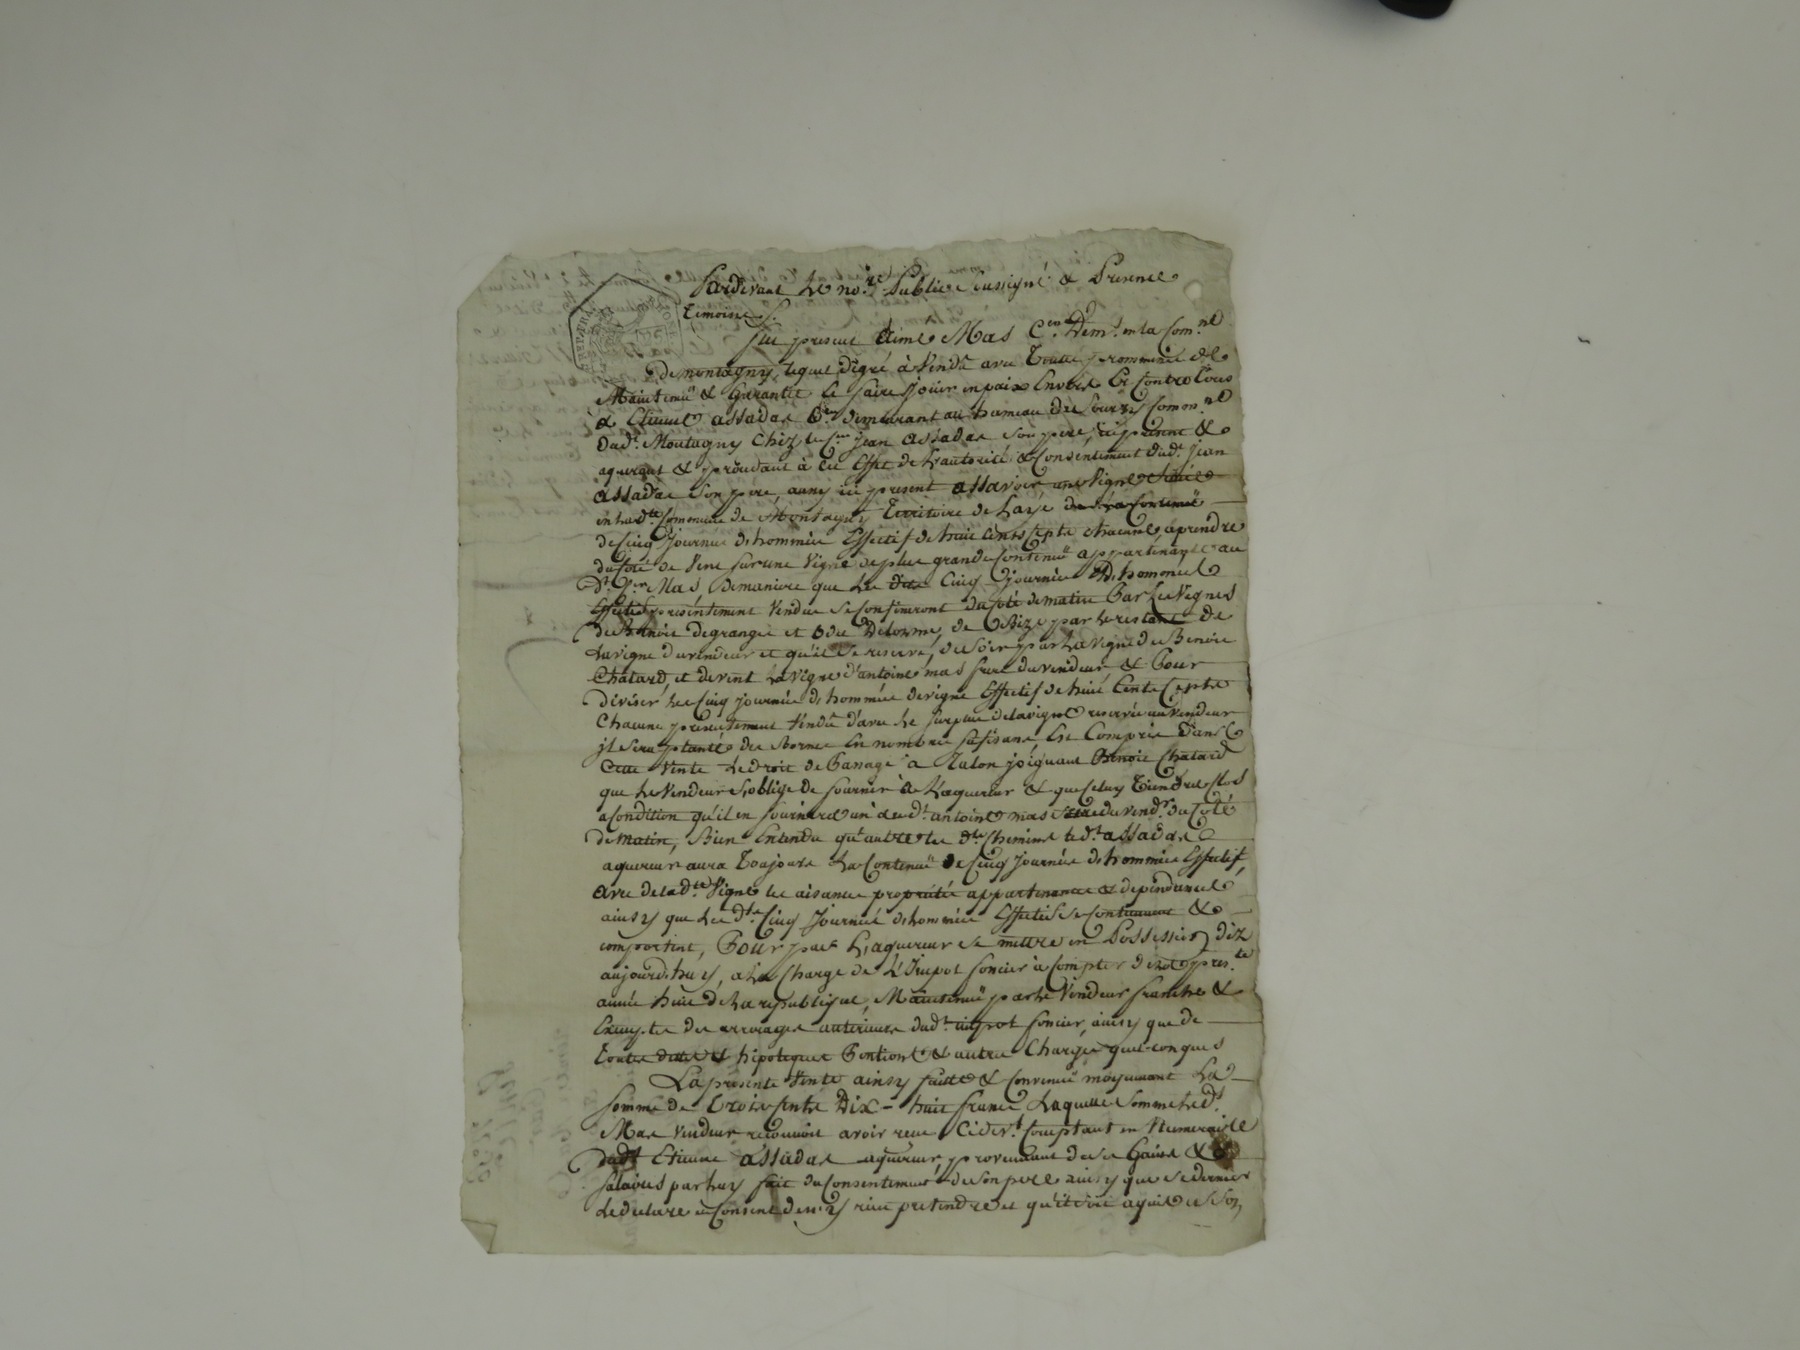 Pardevant le no.re Public soussigné & Presence
temoins S.
fut present Aimé Mas C.en Dem.t en la Com.ne
de montagny, lequel degré à Vendu avec Toutte promesse de
Maintenüe & Garantie le faire Joüir en paix Envers Et Contre tous
à Etienne assadas C.en demeurant au hameau des Souzy Comm.ne
dud.t Montagny Chez le C.en jean assadas son pere, icy present &
aquerant & procedant à cet Effet de L'autorité & Consentement dud.t jean
assadas son pere, aussy ici present assavoir une Vigne située
en lad.te Commune de Montagny Territoire de Layé de la Contenüe
de Cinq Journée d'hommée Effectif de huit Cents Cepts chacune, a prendre
du Coté de Vent sur une Vigne de plus grande Contenüe appartenante au
D.t C.en Mas, Demaniere que les dites Cinq Journée d'hommée
Effectif presentement Vendue se Confineront du Coté de matin Par les Vignes
de Benoit degrange et Delorme, de Bize par le restant de
la vigne du vendeur et qu'il se reserve, de soir par La Vigne de Benoit
Chatard, et de vent La Vigne d'antoine mas frere du vendeur & Pour
diviser les Cinq journée d'hommée de vigne Effectif de huit Cents Cepts
Chacune presentement Vendüe d'avec le surplus de la vigne reservée au vendeur
il sera planté des Bornes En nombre sufisant, Est Compris dans
Cette Vente le droit de Passage à Talon joignant Benoit Chatard
que le Vendeur s'oblige de fournir à L'aquereur & que Celuy tiendra Clos
a Condition qu'il en fournira un aud.t antoine mas frere du vend.r du Coté
de matin, Bien Entendu qu'outre les d.ts Chemins led.t assadas
aquereur aura Toujours La Contenüe de Cinq journée d'hommée Effectif,
avec de lad.te Vigne les aisances proprietés appartenances & dependances
ainsy que les d.te Cinq Journée d'hommée Effectif se Contiennent &
comportent, Pour par L'aquereur se mettre en Possession dez
aujourd'huy, a La Charge de L'Impot foncier à Compter de la pres.te
année huit de La republique, Maintenüe par le Vendeur franche &
Exempte des arrerages anterieurs dud.t impot foncier, ainsy que de
toutes dettes & hipoteques Pentions & autres Charges quelconques
La presente Vente ainsy faitte & Convenüe moyennant La
somme de trois Cents Dix-huit francs Laquelle somme led.t
Mas Vendeur reconnoit avoir reçu Cidev.t Comptant en Numeraire
dud.t Etienne assadas aquereur, provenant de ses Gains &
salaires par Luy fait du Consentement de son pere ainsy que ce dernier
le declare et Consent de n'y rien pretendre et qu'il soit aquis a son